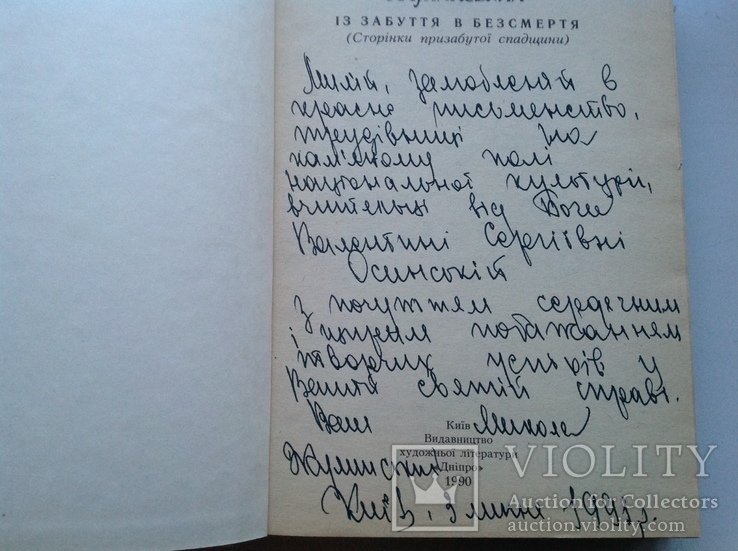 ІЗ ЗАБУТТЯ В БЕЗСМЕРТЯ
(Сторінки призабутої спадщини)
Милій, залюбленій в
красне письменство,
трудівниці на
кам'яному полі
національної культури,
вчительці від Бога
Валентині Сергіївні
Осинській
з почуттям сердечним
і щирим побажанням
творчих успіхів у
Вашій святій справі.
Ваш Микола
Київ
Видавництво
художньої літератури
«Дніпро»
1990
Жулинський
Київ, липня
VIOLITY
Auction for Collectors
auction.violity.com